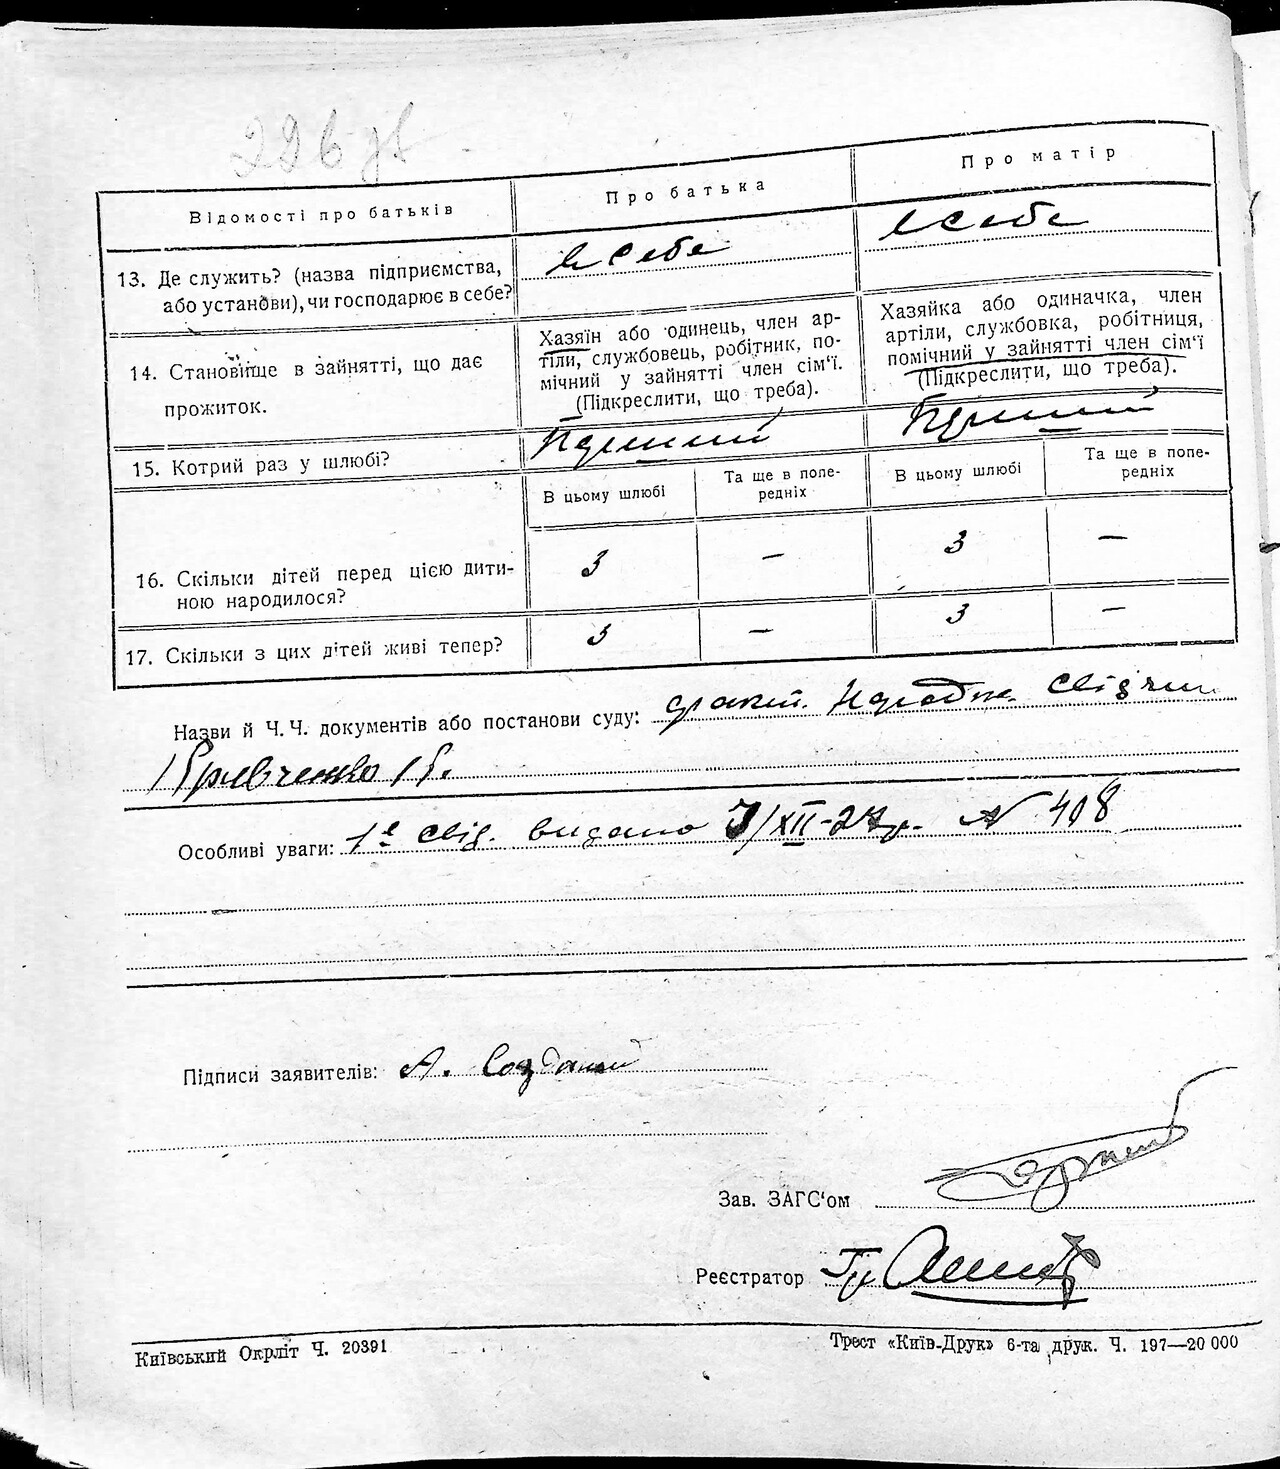 296 зв
Відомості про батьків
Про батька
Про матір
13. Де служить? (назва підприємства,
або установи), чи господарює в себе?
в себе
в себе
14. Становище в зайнятті, що дає
прожиток.
Хазяїн або одинець, член ар-
тіли, службовець, робітник, по-
мічний у зайнятті член сім'ї.
(Підкреслити, що треба).
Хазяйка або одиначка, член
артіли, службовка, робітниця,
помічний у зайнятті член сім'ї
(Підкреслити, що треба).
15. Котрий раз у шлюбі?
Перший
Перший
В цьому шлюбі
Та ще в попе-
редніх
В цьому шлюбі
Та ще в попе-
редніх
16. Скільки дітей перед цією дити-
ною народилося?
3 — 3 —
17. Скільки з цих дітей живі тепер?
3 — 3 —
Назви й Ч. Ч. документів або постанови суду:
Особливі уваги: 1е свід. видано 7/XII-27р. № 408
Підписи заявителів: А.
Зав. ЗАГС'ом
Реєстратор
Київський Окрліт Ч. 20391
Трест «Київ-Друк» 6-та друк. Ч. 197—20 000